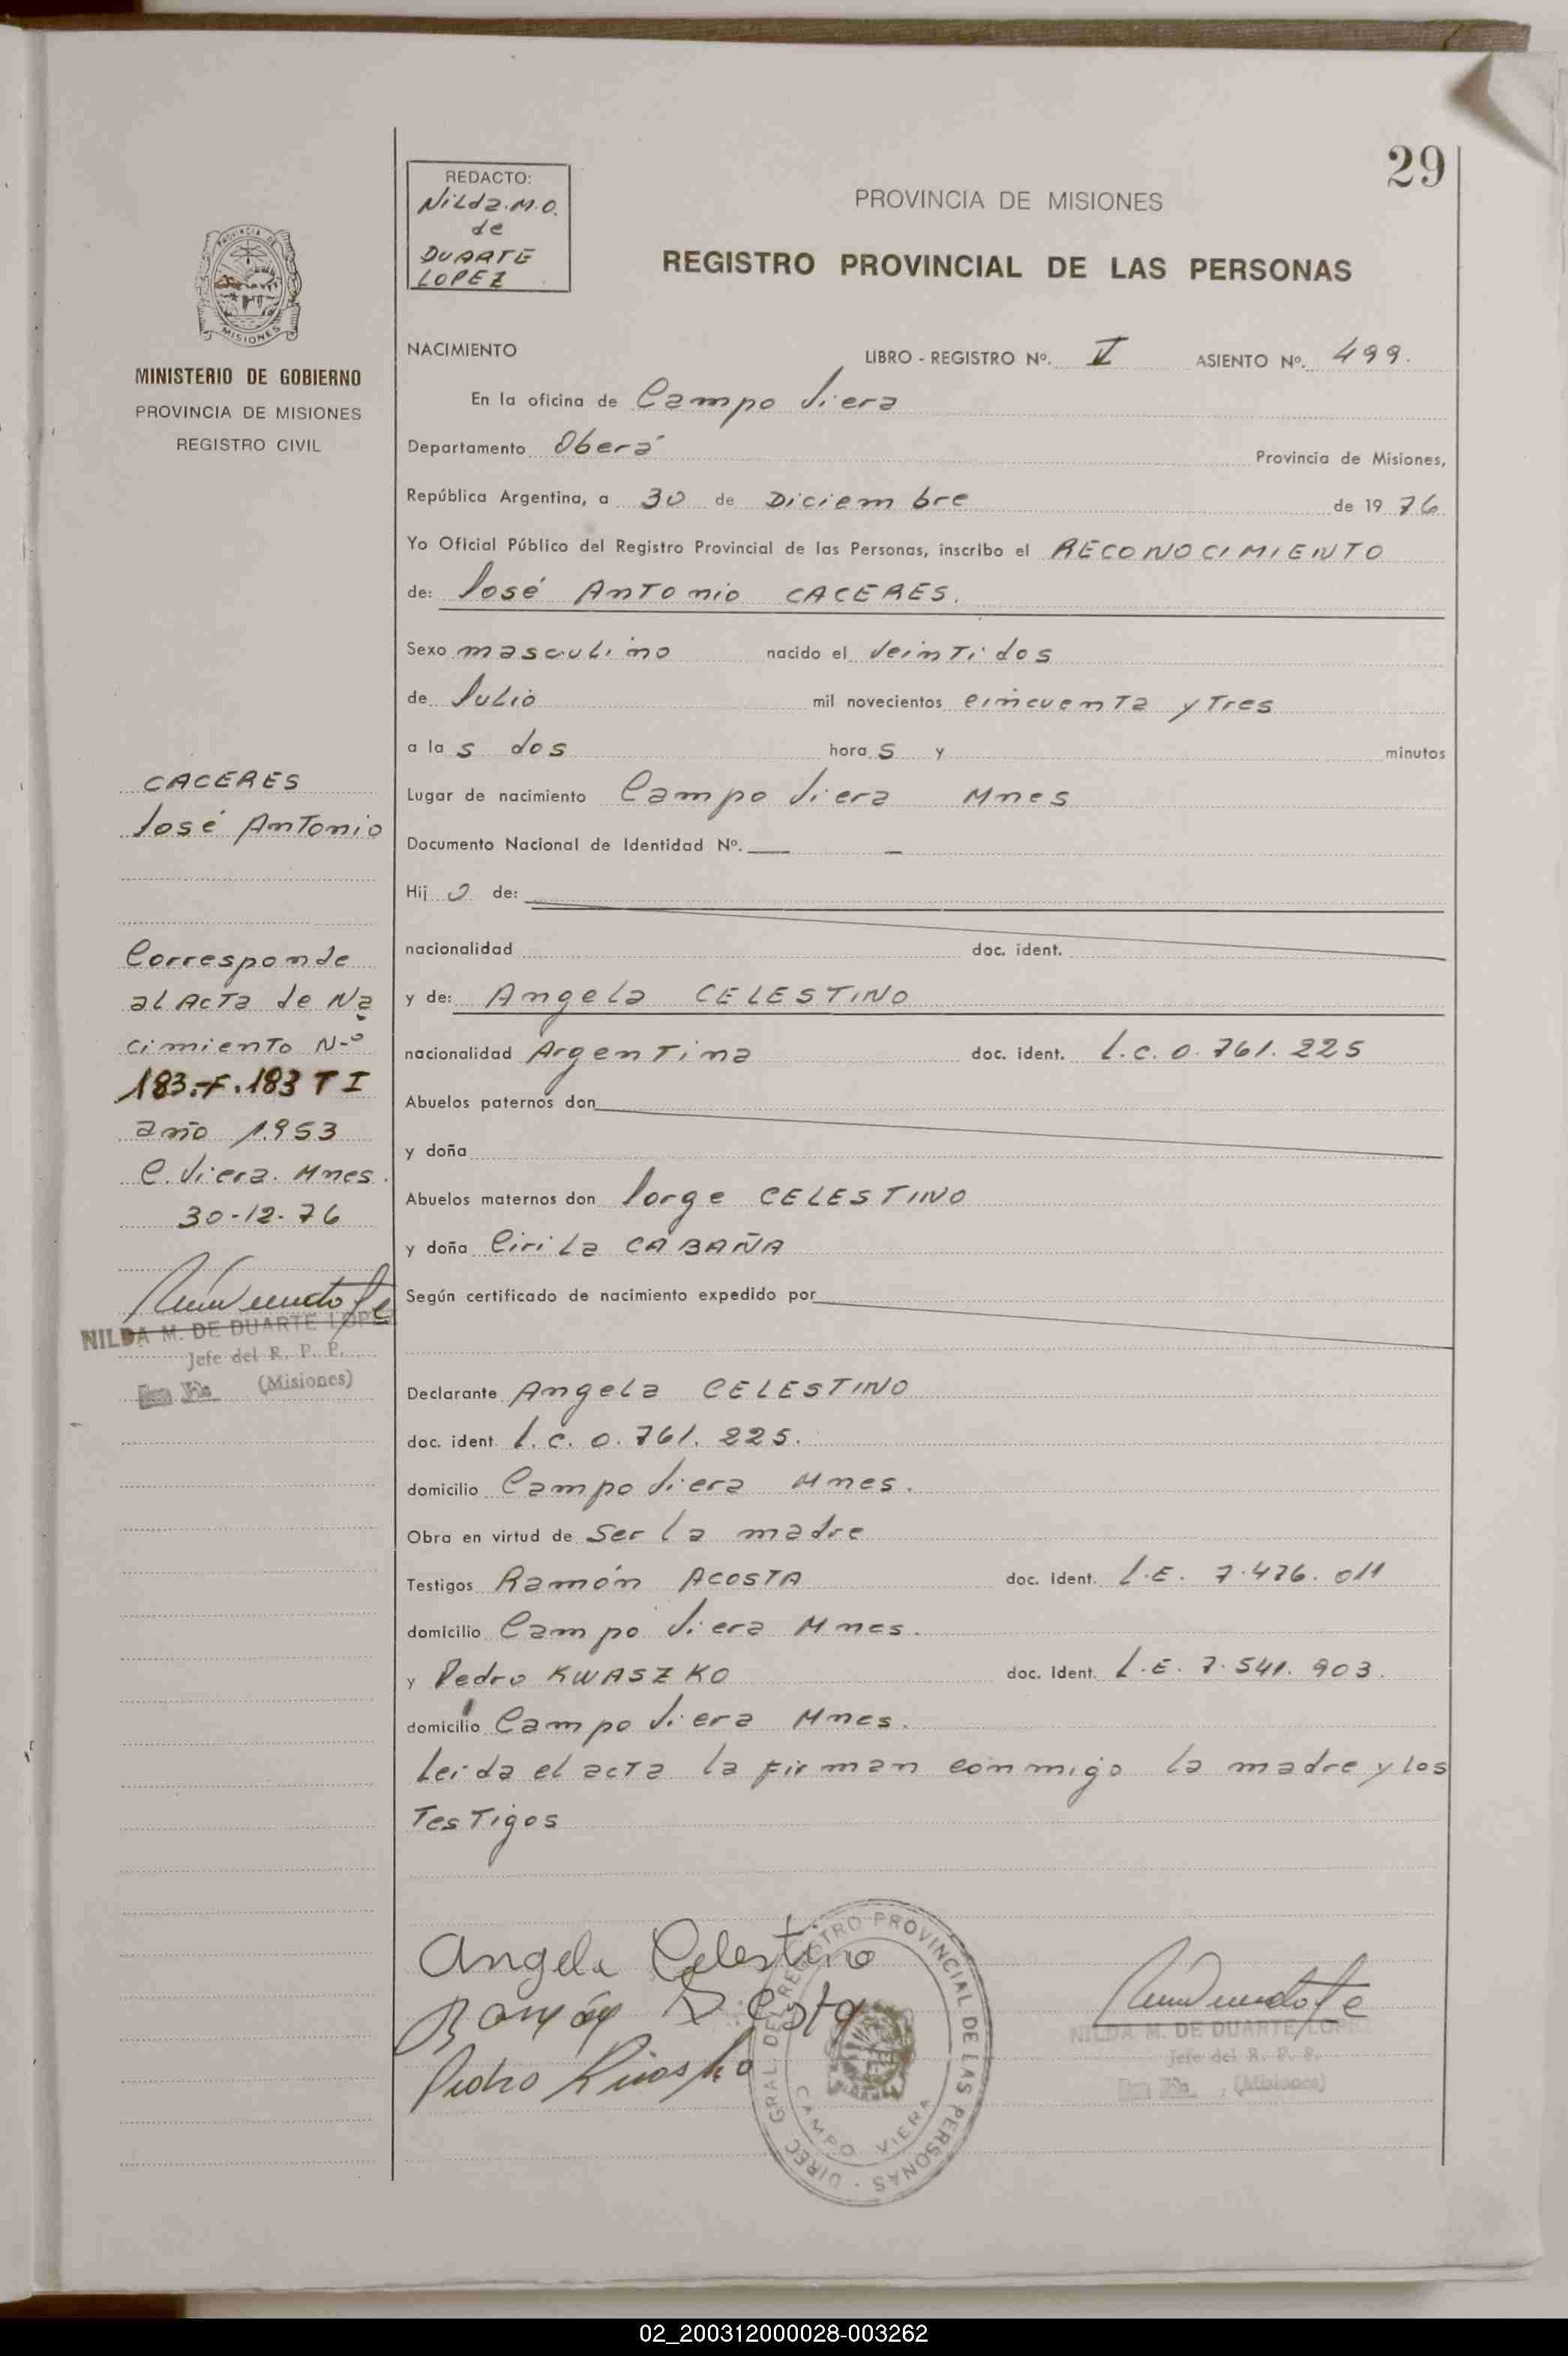 29
REDACTO:
Nilda.M.O.
de
DUARTE
LOPEZ
PROVINCIA DE MISIONES
REGISTRO PROVINCIAL DE LAS PERSONAS
PROVINCIA DE
MISIONES
MINISTERIO DE GOBIERNO
PROVINCIA DE MISIONES
REGISTRO CIVIL
NACIMIENTO LIBRO - REGISTRO Nº. V ASIENTO Nº. 499.
En la oficina de Campo Viera
Departamento Oberá Provincia de Misiones,
República Argentina, a 30 de Diciembre de 1976
Yo Oficial Público del Registro Provincial de las Personas, inscribo el RECONOCIMIENTO
de: José Antonio CACERES.
Sexo masculino nacido el veintidos
de Julio mil novecientos cincuenta y Tres
a las dos horas y minutos
Lugar de nacimiento Campo Viera Mnes
Documento Nacional de Identidad Nº. — –
Hijo de:
nacionalidad doc. ident.
y de: Angela CELESTINO
nacionalidad Argentina doc. ident. L.C. 0.761.225
Abuelos paternos don
y doña
Abuelos maternos don Jorge CELESTINO
y doña Cirila CABAÑA
Según certificado de nacimiento expedido por
Declarante Angela CELESTINO
doc. ident. L.C. 0.761.225.
domicilio Campo Viera Mnes.
Obra en virtud de Ser la madre
Testigos Ramón ACOSTA doc. ident. L.E. 7.476.011
domicilio Campo Viera Mnes.
y Pedro KWASZKO doc. Ident. L.E. 7.541.903.
domicilio Campo Viera Mnes.
Leida el acta la firman conmigo la madre y los
Testigos
CACERES
José Antonio
Corresponde
al Acta de Na
cimiento N-º
183.-F.183 T I
año 1.953
C. Viera. Mnes.
30-12-76
NILDA M. DE DUARTE LOPEZ
Jefe del R. P. P.
(Misiones)
Angela Celestino
Ramón
Pedro
DIREC GRAL. DEL REGISTRO PROVINCIAL DE LAS PERSONAS -
CAMPO VIERA
NILDA M. DE DUARTE LOPEZ
Jefe del R. P. P.
(Misiones)
02_200312000028-003262